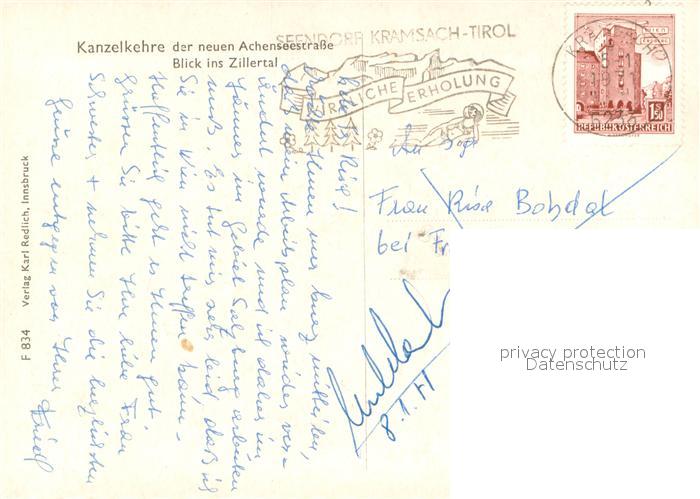 Kanzelkehre der neuen Achenseestraße
Blick ins Zillertal
SEENDORF KRAMSACH-TIROL
FRÖHLICHE ERHOLUNG
KRAMSACH
1971
6233
1.50
REPUBLIK ÖSTERREICH
Frau Risa Bohdal
bei Fr
8.1.71
Verlag Karl Redlich, Innsbruck
F 834
Liebe Risa!
Möchte Ihnen nur kurz mitteilen,
daß mein Arbeitsplan wieder ver-
ändert wurde und ich daher im
Jänner im Gebiet Salzburg arbeiten
muß. Es tut mir sehr leid, daß ich
Sie in Wien nicht treffen kann.
Hoffentlich geht es Ihnen gut.
Grüssen Sie bitte Ihre liebe Frau
Schwester + nehmen Sie die herzlichsten
Grüsse entgegen von Ihrer
privacy protection
Datenschutz